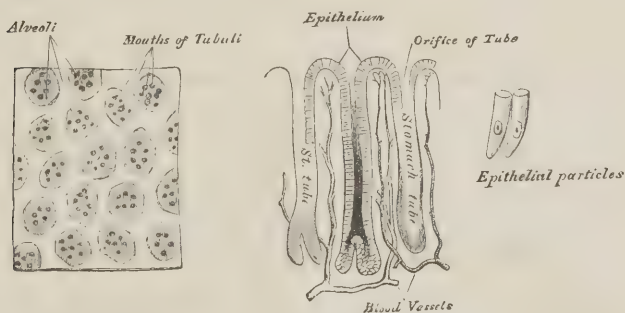 Alveoli
Mouths of Tubuli
Epithelium
Orifice of Tube
St. tube
Stomach tube
Epithelial particles
Blood Vessels